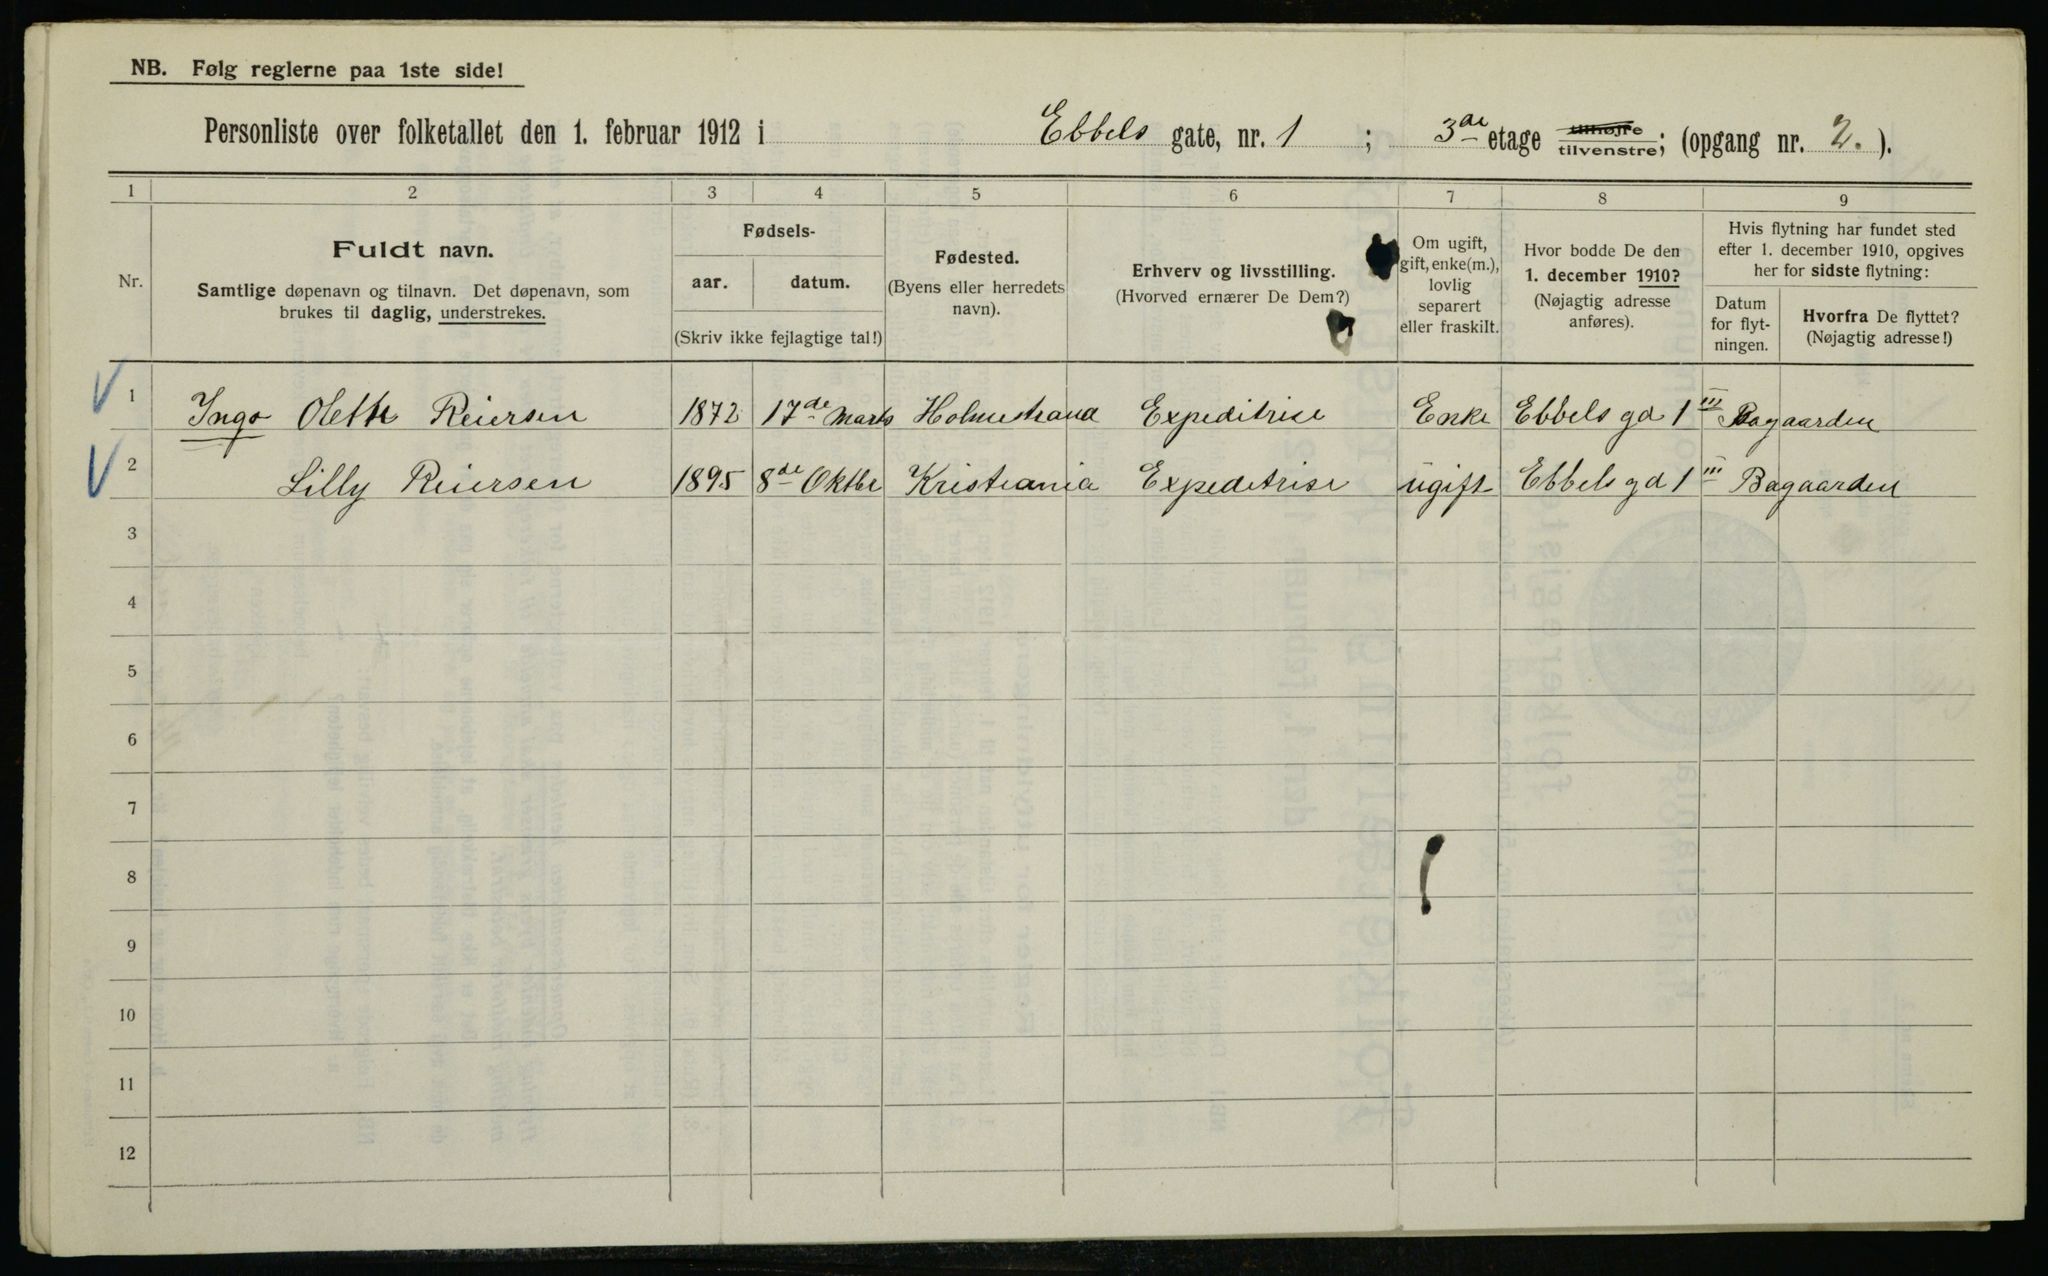 NB. Følg reglerne paa 1ste side!
Personliste over folketallet den 1. februar 1912 i Ebbels gate, nr. 1 ; 3de etage tilhøjre tilvenstre; (opgang nr. 2. ).
1 2 3 4 5 6 7 8 9
Nr.
Fuldt navn.
Samtlige døpenavn og tilnavn. Det døpenavn, som
brukes til daglig, understrekes.
Fødsels-
aar. datum.
(Skriv ikke fejlagtige tal!)
Fødested.
(Byens eller herredets
navn).
Erhverv og livsstilling.
(Hvorved ernærer De Dem?)
Om ugift,
gift, enke(m.),
lovlig
separert
eller fraskilt.
Hvor bodde De den
1. december 1910?
(Nøjagtig adresse
anføres).
Hvis flytning har fundet sted
efter 1. december 1910, opgives
her for sidste flytning:
Datum
for flyt-
ningen.
Hvorfra De flyttet?
(Nøjagtig adresse!)
1 Inga Oleth Reiersen 1872 17de Marts Holmestrand Expeditrise Enke Ebbels gd 1 III Bagaarden
2 Lilly Reiersen 1895 8de Oktbr Kristiania Expeditrise ugift Ebbels gd 1 III Bagaarden
3
4
5
6
7
8
9
10
11
12